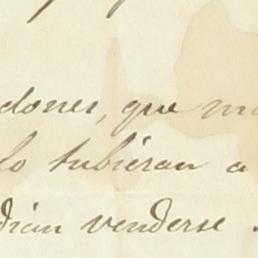 dones, que
lo tubieran a
dian venderse